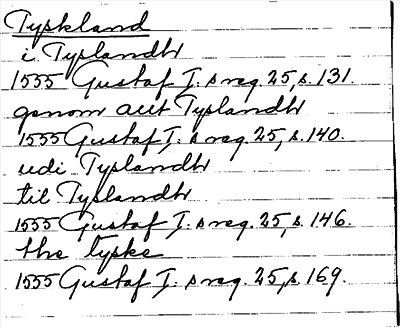 Tyskland
i Tyslandh
1555 Gustaf I:s reg. 25, s. 131.
genom aut Tyslandh
1555 Gustaf I:s reg. 25, s. 140.
udi Tyslandh
til Tyslandh
1555 Gustaf I:s reg. 25, s. 146.
the tyske
1555 Gustaf I:s reg. 25, s. 169.